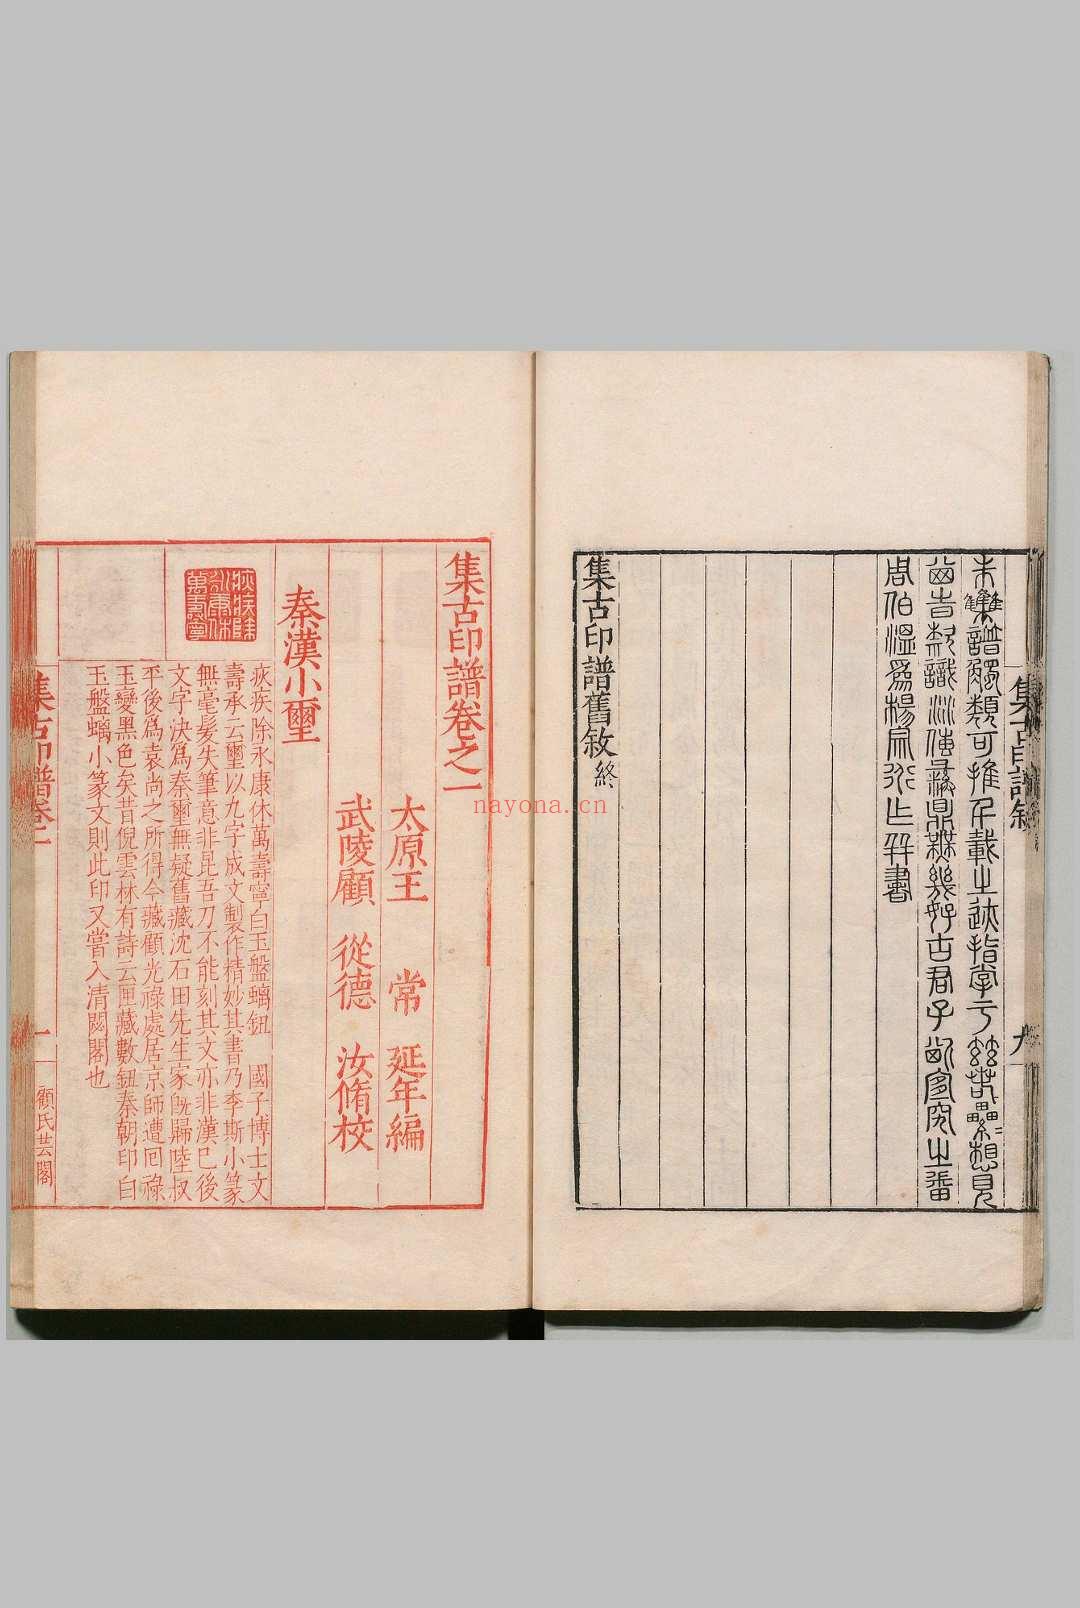 觸類可推千載之迹指掌
好古君子
周伯溫爲楊宗道作并書
集古印譜舊敘終
集古印譜敘
九
集古印譜卷之一
太原王 常 延年編
武陵顧 從德 汝脩校
秦漢小璽
疢疾除永康休萬壽寧白玉盤螭鈕 國子博士文
壽承云璽以九字成文製作精妙其書乃李斯小篆
無毫髮失筆意非昆吾刀不能刻其文亦非漢已後
文字決爲秦璽無疑舊藏沈石田先生家旣歸陸叔
平後爲袁尚之所得今藏顧光祿處居京師遭回祿
玉變黑色矣昔倪雲林有詩云匣藏數鈕秦朝印白
玉盤螭小篆文則此印又當入清閟閣也
集古印譜卷一
一
顧氏芸閣
nayona.cn